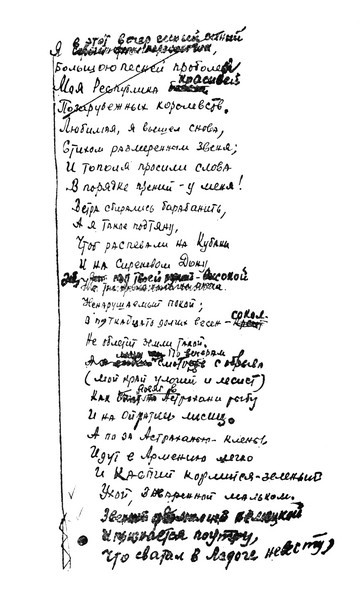 Я в этот вечер осенний
Большою песней проболел
Моя Республика красивей
Позарубежных королевств.
Любимая, я вышел снова,
Стихом размеренным звеня;
И тополя просили слова
В порядке прений - у меня!
Ветра сбирались барабанить,
А я такое подтяну,
Чтоб распевали на Кубани
И на Сиреневом Дону
высокой
Ненарушаемый покой;
В пятнадцать долгих весен - сокол
Не облетит земли такой.
По вечерам
смотреть с обрыва
(мой край угодий и лесист)
Как в Астрахани рыбу
И на
А по за Астраханью - кленов
Идут в Армению легко
И Каспий кормится зеленый
Ухой, зажаренной мальком.
И признается поутру,
Что сватал в Ладоге невесту,